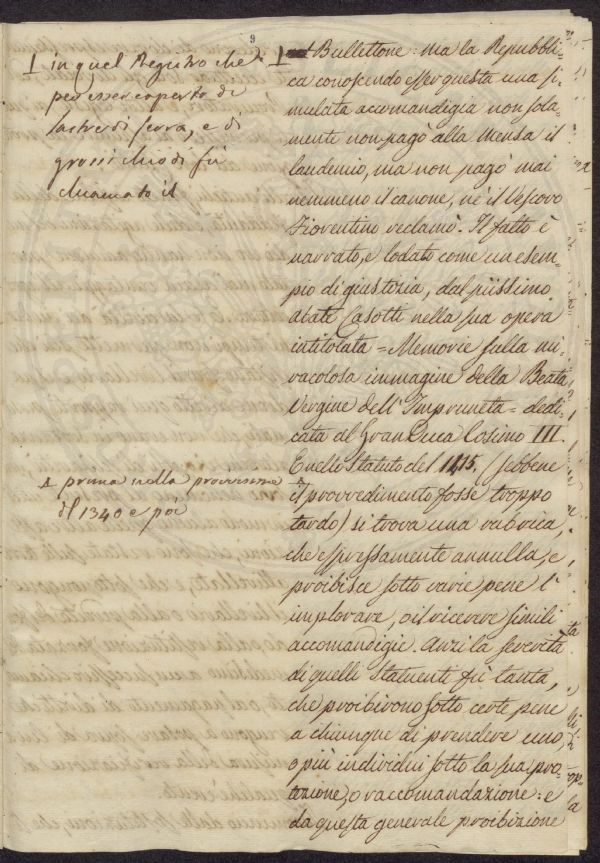 9
in quel Registro che
per esser coperto di
lastre di ferro, e di
grossi chiodi fù
chiamato il
Bullettone: ma la Repubbli-
ca conoscendo esser questa una si-
mulata accomandigia non sola-
mente non pagò alla Mensa il
laudemio, ma non pagò mai
nemmeno il canone, nè il Vescovo
Fiorentino reclamò. Il fatto è
narrato, e lodato come un esem-
pio di giustizia, dal piissimo
Abate Casotti nella sua opera
intitolata = Memorie sulla mi-
racolosa immagine della Beata
Vergine dell'Impruneta = dedi-
cata al Gran Duca Cosimo III.
prima nella provvisione
del 1340 e poi
E nello Statuto del 1415. (sebbene
il provvedimento fosse troppo
tardo) si trova una rubrica,
che espressamente annulla, e
proibisce sotto varie pene l'
implorare, o il ricevere simili
accomandigie. Anzi la severità
di quelli Statuenti fù tanta,
che proibirono sotto certe pene
a chiunque di prendere uno,
o più individui sotto la sua pro-
tezione, o raccomandazione: e
da questa generale proibizione